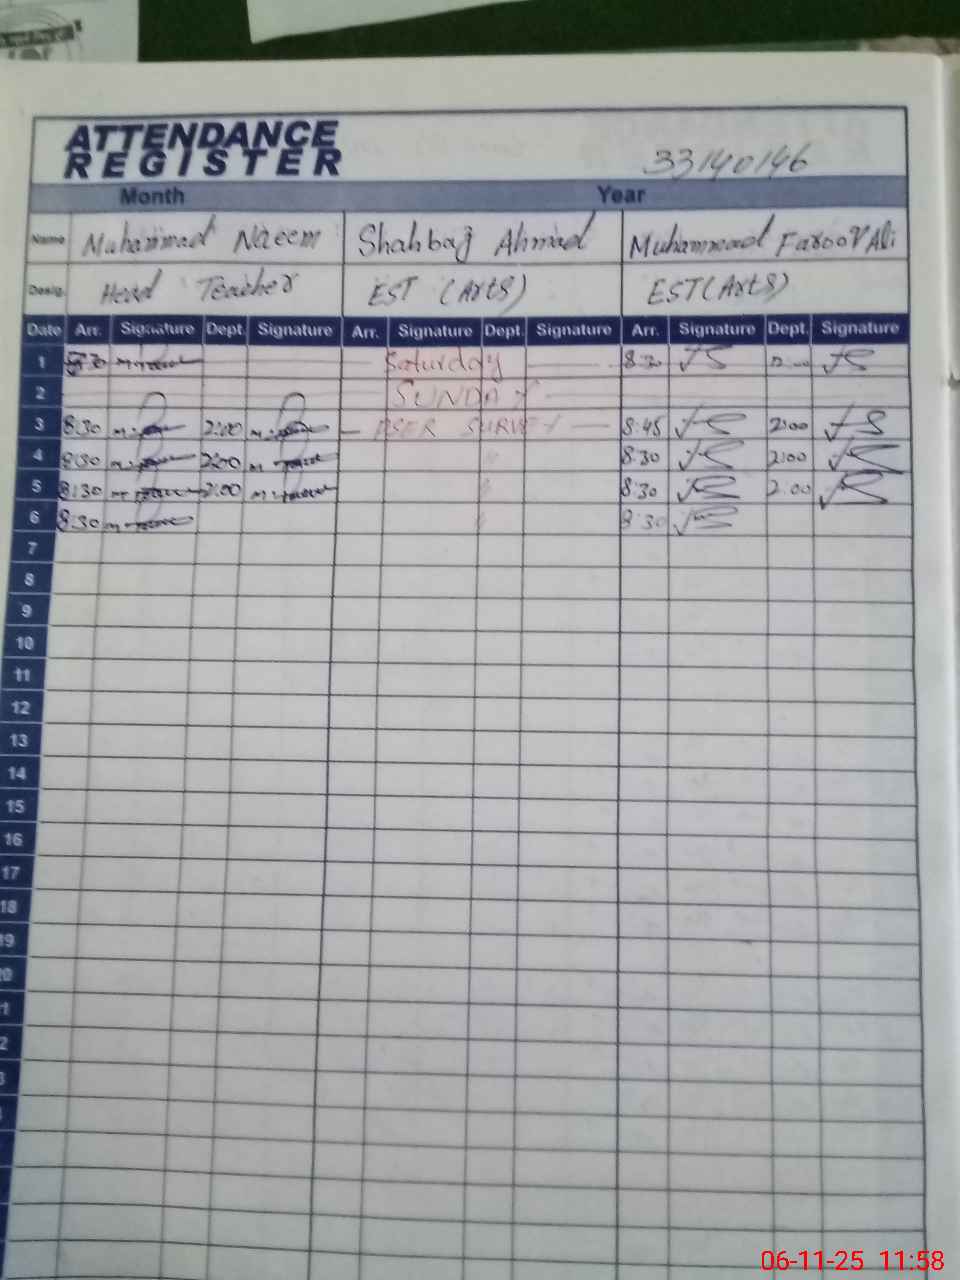 ATTENDANCE
REGISTER
33140146
Month Year
Name Muhammad Naeem Shahbaz Ahmad Muhammad Farooq Ali
Desig. Head Teacher EST (Arts) EST (Arts)
Date Arr. Signature Dept. Signature Arr. Signature Dept. Signature Arr. Signature Dept. Signature
1 8:30 Saturday 8:30
2 SUNDAY
3 8:30 2:00 PSER SURVEY 8:45 2:00
4 8:30 2:00 8:30 2:00
5 8:30 2:00 8:30 2:00
6 8:30 8:30
7
8
9
10
11
12
13
14
15
16
17
18
19
06-11-25 11:58